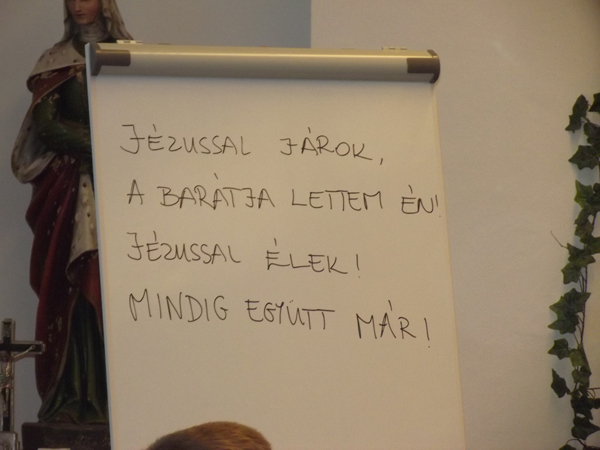 JÉZUSSAL JÁROK,
A BARÁTJA LETTEM ÉN!
JÉZUSSAL ÉLEK!
MINDIG EGYÜTT MÁR!